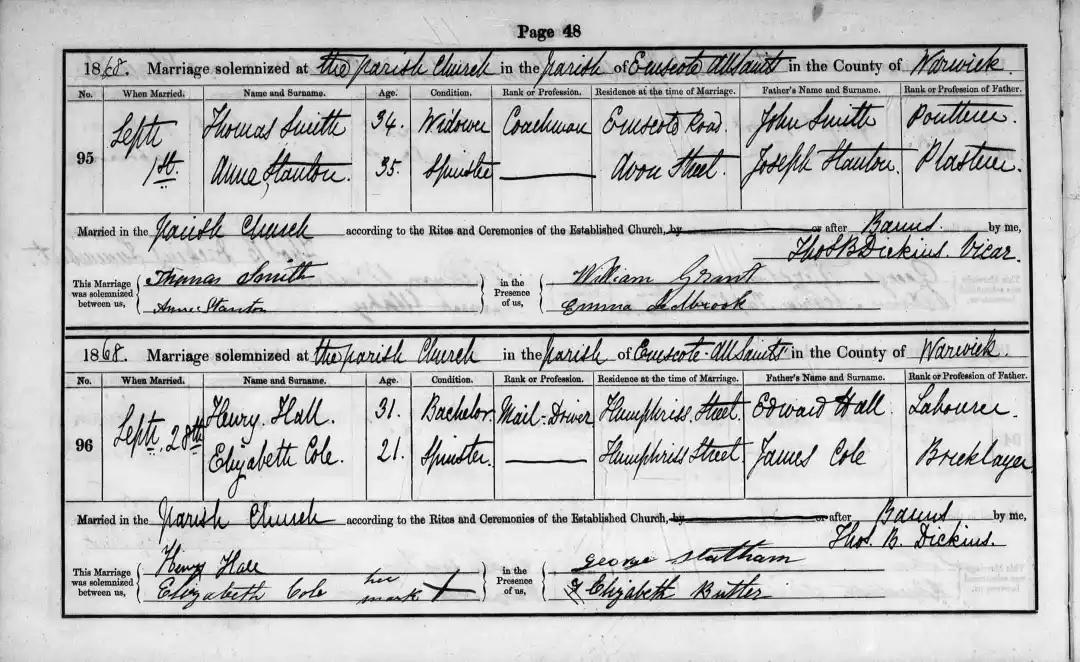 Page 48
1868. Marriage solemnized at the parish Church in the parish of Emscote All Saints in the County of Warwick.
No. When Married. Name and Surname. Age. Condition. Rank or Profession. Residence at the time of Marriage. Father's Name and Surname. Rank or Profession of Father.
Septr Thomas Smith 34. Widower Coachman Emscote Road. John Smith
95 1st. Anne Stanton. 35. Spinster Avon Street. Joseph Stanton. Plasterer.
Married in the parish Church according to the Rites and Ceremonies of the Established Church, by or after Banns. by me,
Thos B Dickins. Vicar.
This Marriage was solemnized between us, Thomas Smith in the Presence of us, William Grant
Anne Stanton Emma
1868. Marriage solemnized at the parish Church in the parish of Emscote All Saints in the County of Warwick.
No. When Married. Name and Surname. Age. Condition. Rank or Profession. Residence at the time of Marriage. Father's Name and Surname. Rank or Profession of Father.
Henry Hall. 31. Bachelor Humphriss Street. Edward Hall. Labourer.
96 Septr. 28th Elizabeth Cole. 21. Spinster. Humphriss Street James Cole Bricklayer
Married in the parish Church according to the Rites and Ceremonies of the Established Church, by or after Banns by me,
Thos. B. Dickins.
This Marriage was solemnized between us, Henry Hall in the Presence of us, George Statham
Elizabeth Cole her mark X Elizabeth Butler